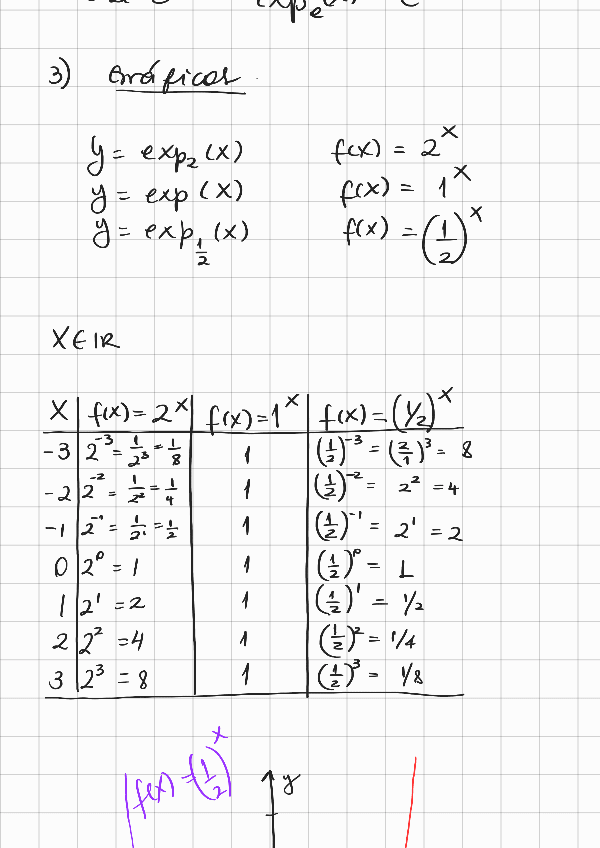 exp_e
3) Gráficos
y = exp₂(x) f(x) = 2^x
y = exp(x) f(x) = 1^x
y = exp_{1/2}(x) f(x) = (1/2)^x
X∈IR
X f(x) = 2^x f(x) = 1^x f(x) = (1/2)^x
-3 2^{-3} = 1/2³ = 1/8 1 (1/2)^{-3} = (2/1)³ = 8
-2 2^{-2} = 1/2² = 1/4 1 (1/2)^{-2} = 2² = 4
-1 2^{-1} = 1/2¹ = 1/2 1 (1/2)^{-1} = 2¹ = 2
0 2⁰ = 1 1 (1/2)⁰ = 1
1 2¹ = 2 1 (1/2)¹ = 1/2
2 2² = 4 1 (1/2)² = 1/4
3 2³ = 8 1 (1/2)³ = 1/8
f(x) = (1/2)^x
y